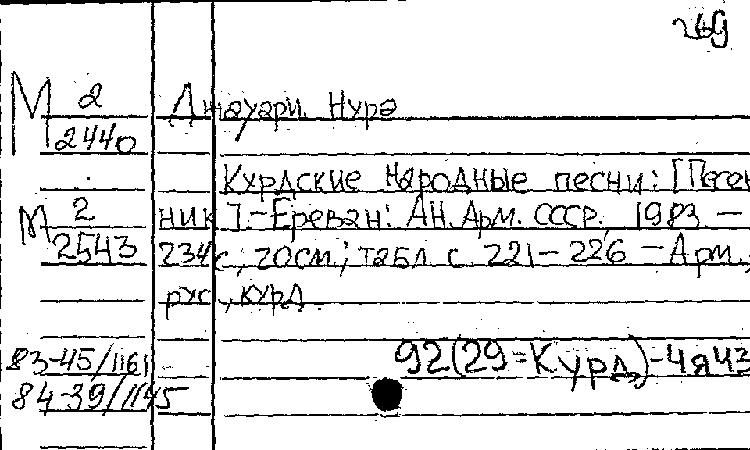 269
М 2/2440 Джауари Нурэ
Курдские народные песни: [Песен
М 2/2543 ник].-Ереван: АН. Арм. СССР, 1983. —
234 с.; 20см.; табл. с. 221-226 — Арм.,
рус., курд.
83-45/1161 92(29=Курд.)-4я43
84-39/1145